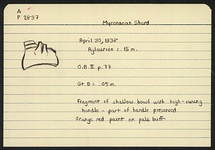 A
P 2837
Mycenaean Sherd
April 30, 1938
c. 15 m.
O.B. II p. 77
Gr. D : .05 m.
Fragment of shallow bowl with high-swung
handle - part of handle preserved
Orange red paint on pale buff